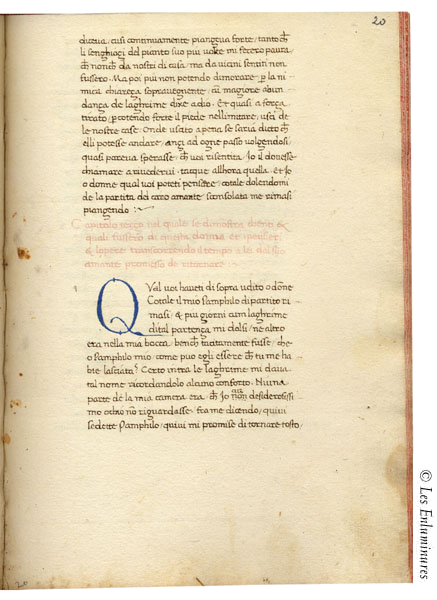 20
diceva, cusi continuamente piangeva forte, tanto ch̄
li senghioçi del pianto suo piu volte mi fecero paura
ch̄ nonch̄ da nostri di casa, ma da vicini sentiti non
fussero. Ma poi piu non potendo dimorare, p̱ la ni⸗
mica chiareça sopravegnente, cū magiore abun
dança de laghrime dixe adio. Et quasi a força
tirato, p̱cotendo forte il piede nellimitare, usci de
le nostre case. Onde uscito apena se saria dicto ch̄
elli potesse andare, ançi ad ogne passo volgendosi
quasi pareva sperasse, ch̄ voi risentita, Io il dovesse
chiamare a rivedervi. taque allhora quella. et Io
o donne qual voi poteti pensere, cotale dolendomi
de la partita del caro amante sconsolata me rimasi
piangendo :~
Capitolo terço nel quale se dimostra
quali fussero di questa donna et pensieri
transcorrendo il tempo a lei dal suo
amante promesso de ritornare
Qual voi haveti di sopra udito o done
Cotale il mio Pamphilo dipartito ri
masi, & piu giorni cum laghrime
di tal partença mi dolsi, ne altro
era nella mia bocca, bench̄ tacitamente fusse, che
o Pamphilo mio, come puo egli essere ch̄ tu me ha
bie lasciata? Certo intra le laghrime mi dava
tal nome ricordandolo alcuno conforto. Niuna
parte de la mia camera era, ch̄ Io non desiderosissi
mo ochio nō riguardasse, fra me dicendo, quivi
sedette Pamphilo, quivi mi promise di tornare tosto,
20
© Les Enluminures